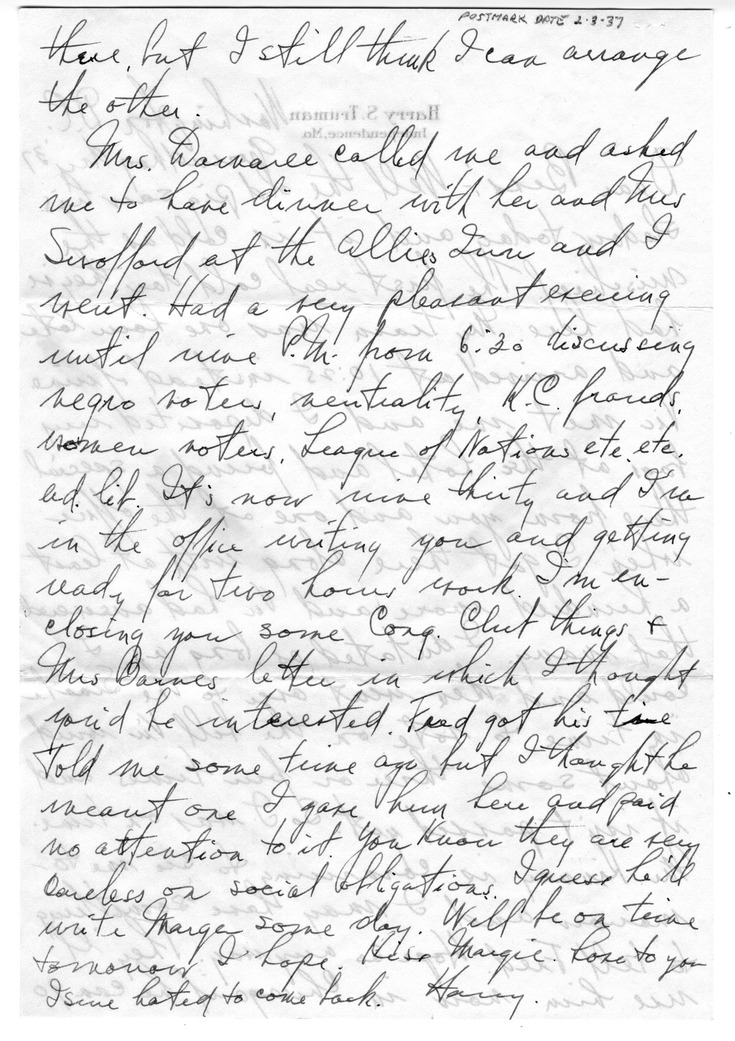 POSTMARK DATE 2-3-37
there, but I still think I can arrange
the other.
Harry S. Truman
Independence, Mo.
Mrs. Damaree called me and asked
me to have dinner with her and Mrs
Swofford at the Allies Inn and I
went. Had a very pleasant evening
until nine P.M. from 6:30 discussing
negro voters, neutrality, K.C. frauds,
women voters, League of Nations etc. etc.
ad. lib. It's now nine thirty and I'm
in the office writing you and getting
ready for two hours work. I'm en-
closing you some Cong. Club things &
Mrs Barnes letter in which I thought
you'd be interested. Fred got his tie
Told me some time ago but I thought he
meant one I gave him here and paid
no attention to it. You know they are very
careless on social obligations. I guess he'll
write Marge some day. Will be on time
tomorrow I hope. Kiss Margie. Love to you
I sure hated to come back. Harry.